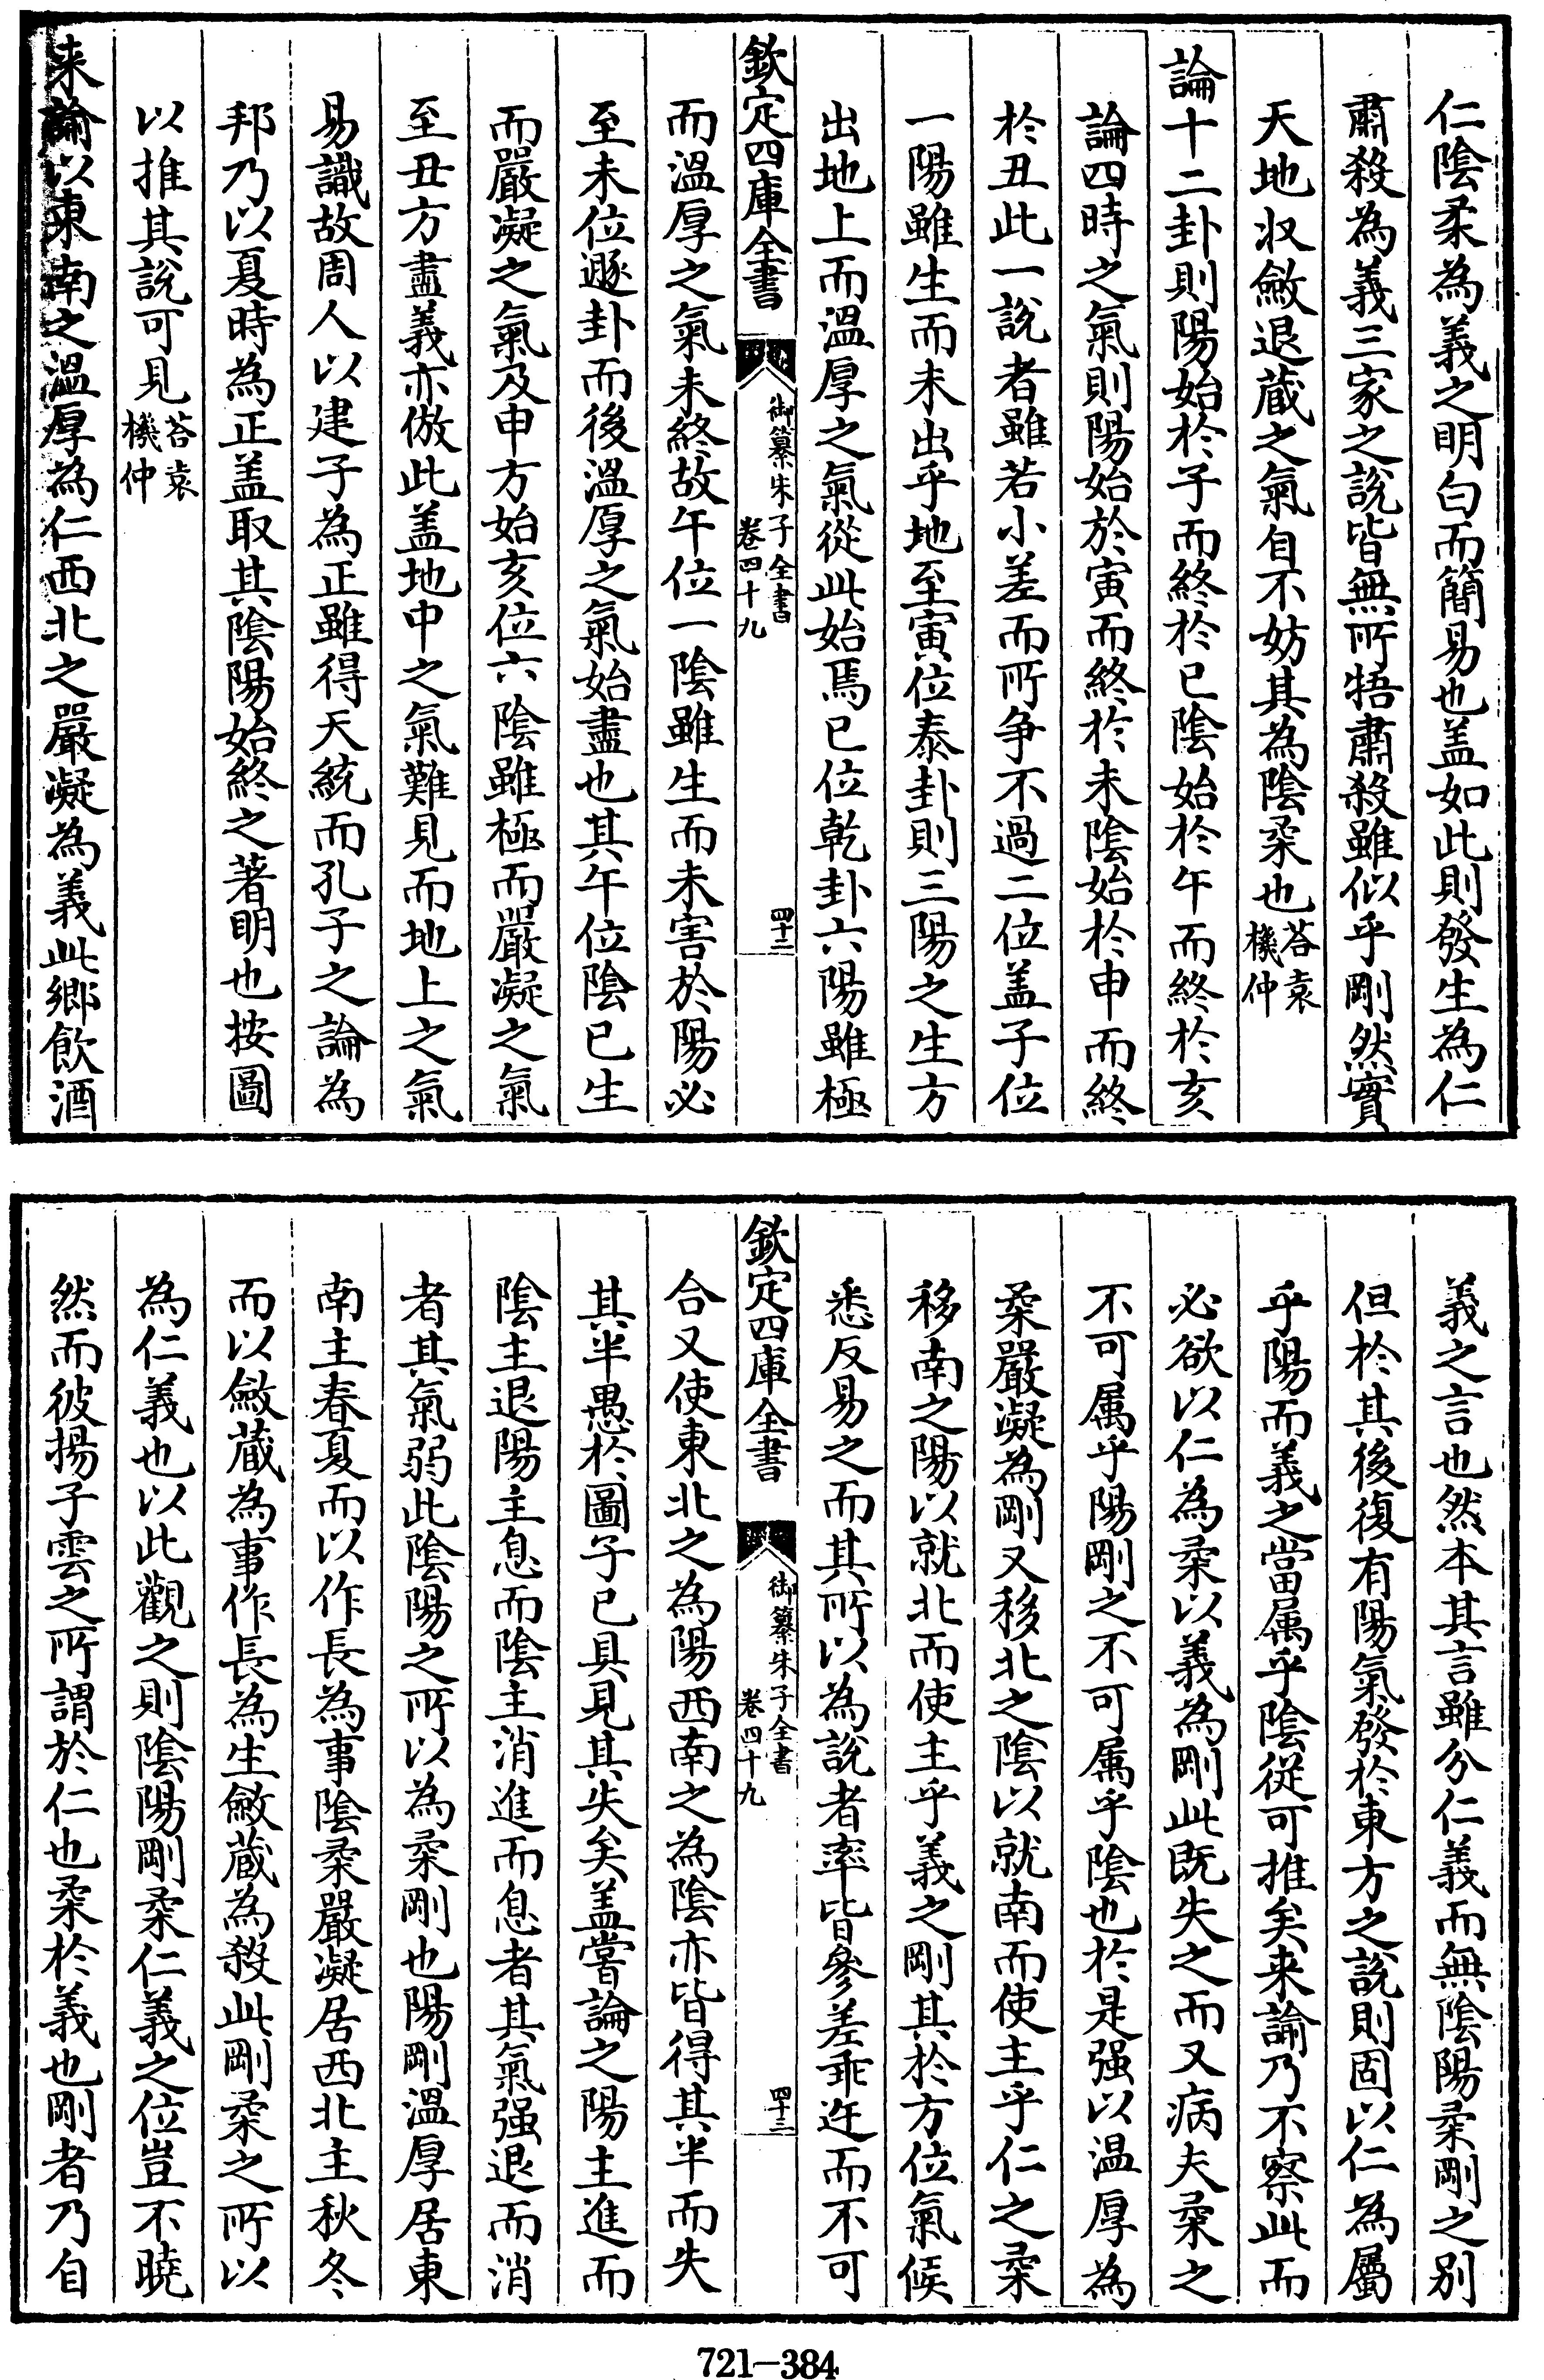 仁陰柔為義之明白而簡易也盖如此則發生為仁
肅殺為義三家之說皆無所牾肅殺雖似乎剛然實
天地收斂退藏之氣自不妨其為陰柔也答袁機仲
論十二卦則陽始於子而終於巳陰始於午而終於亥
論四時之氣則陽始於寅而終於未陰始於申而終
於丑此一說者雖若小差而所争不過二位盖子位
一陽雖生而未出乎地至寅位泰卦則三陽之生方
出地上而溫厚之氣從此始焉巳位乾卦六陽雖極
欽定四庫全書
御纂朱子全書
卷四十九
四十二
而溫厚之氣未終故午位一陰雖生而未害於陽必
至未位遯卦而後溫厚之氣始盡也其午位陰已生
而嚴凝之氣及申方始亥位六陰雖極而嚴凝之氣
至丑方盡義亦倣此盖地中之氣難見而地上之氣
易識故周人以建子為正雖得天統而孔子之論為
邦乃以夏時為正盖取其陰陽始終之著明也按圖
以推其說可見答袁機仲
来諭以東南之溫厚為仁西北之嚴凝為義此鄉飲酒
義之言也然本其言雖分仁義而無陰陽柔剛之別
但於其後復有陽氣發於東方之說則固以仁為屬
乎陽而義之當属乎陰從可推矣来諭乃不察此而
必欲以仁為柔以義為剛此既失之而又病夫柔之
不可属乎陽剛之不可属乎陰也於是强以溫厚為
柔嚴凝為剛又移北之陰以就南而使主乎仁之柔
移南之陽以就北而使主乎義之剛其於方位氣候
悉反易之而其所以為說者率皆參差乖迕而不可
欽定四庫全書
御纂朱子全書
卷四十九
四十三
合又使東北之為陽西南之為陰亦皆得其半而失
其半愚於圖子已具見其失矣盖嘗論之陽主進而
陰主退陽主息而陰主消進而息者其氣强退而消
者其氣弱此陰陽之所以為柔剛也陽剛溫厚居東
南主春夏而以作長為事陰柔嚴凝居西北主秋冬
而以斂藏為事作長為生斂藏為殺此剛柔之所以
為仁義也以此觀之則陰陽剛柔仁義之位豈不曉
然而彼揚子雲之所謂於仁也柔於義也剛者乃自
721—384